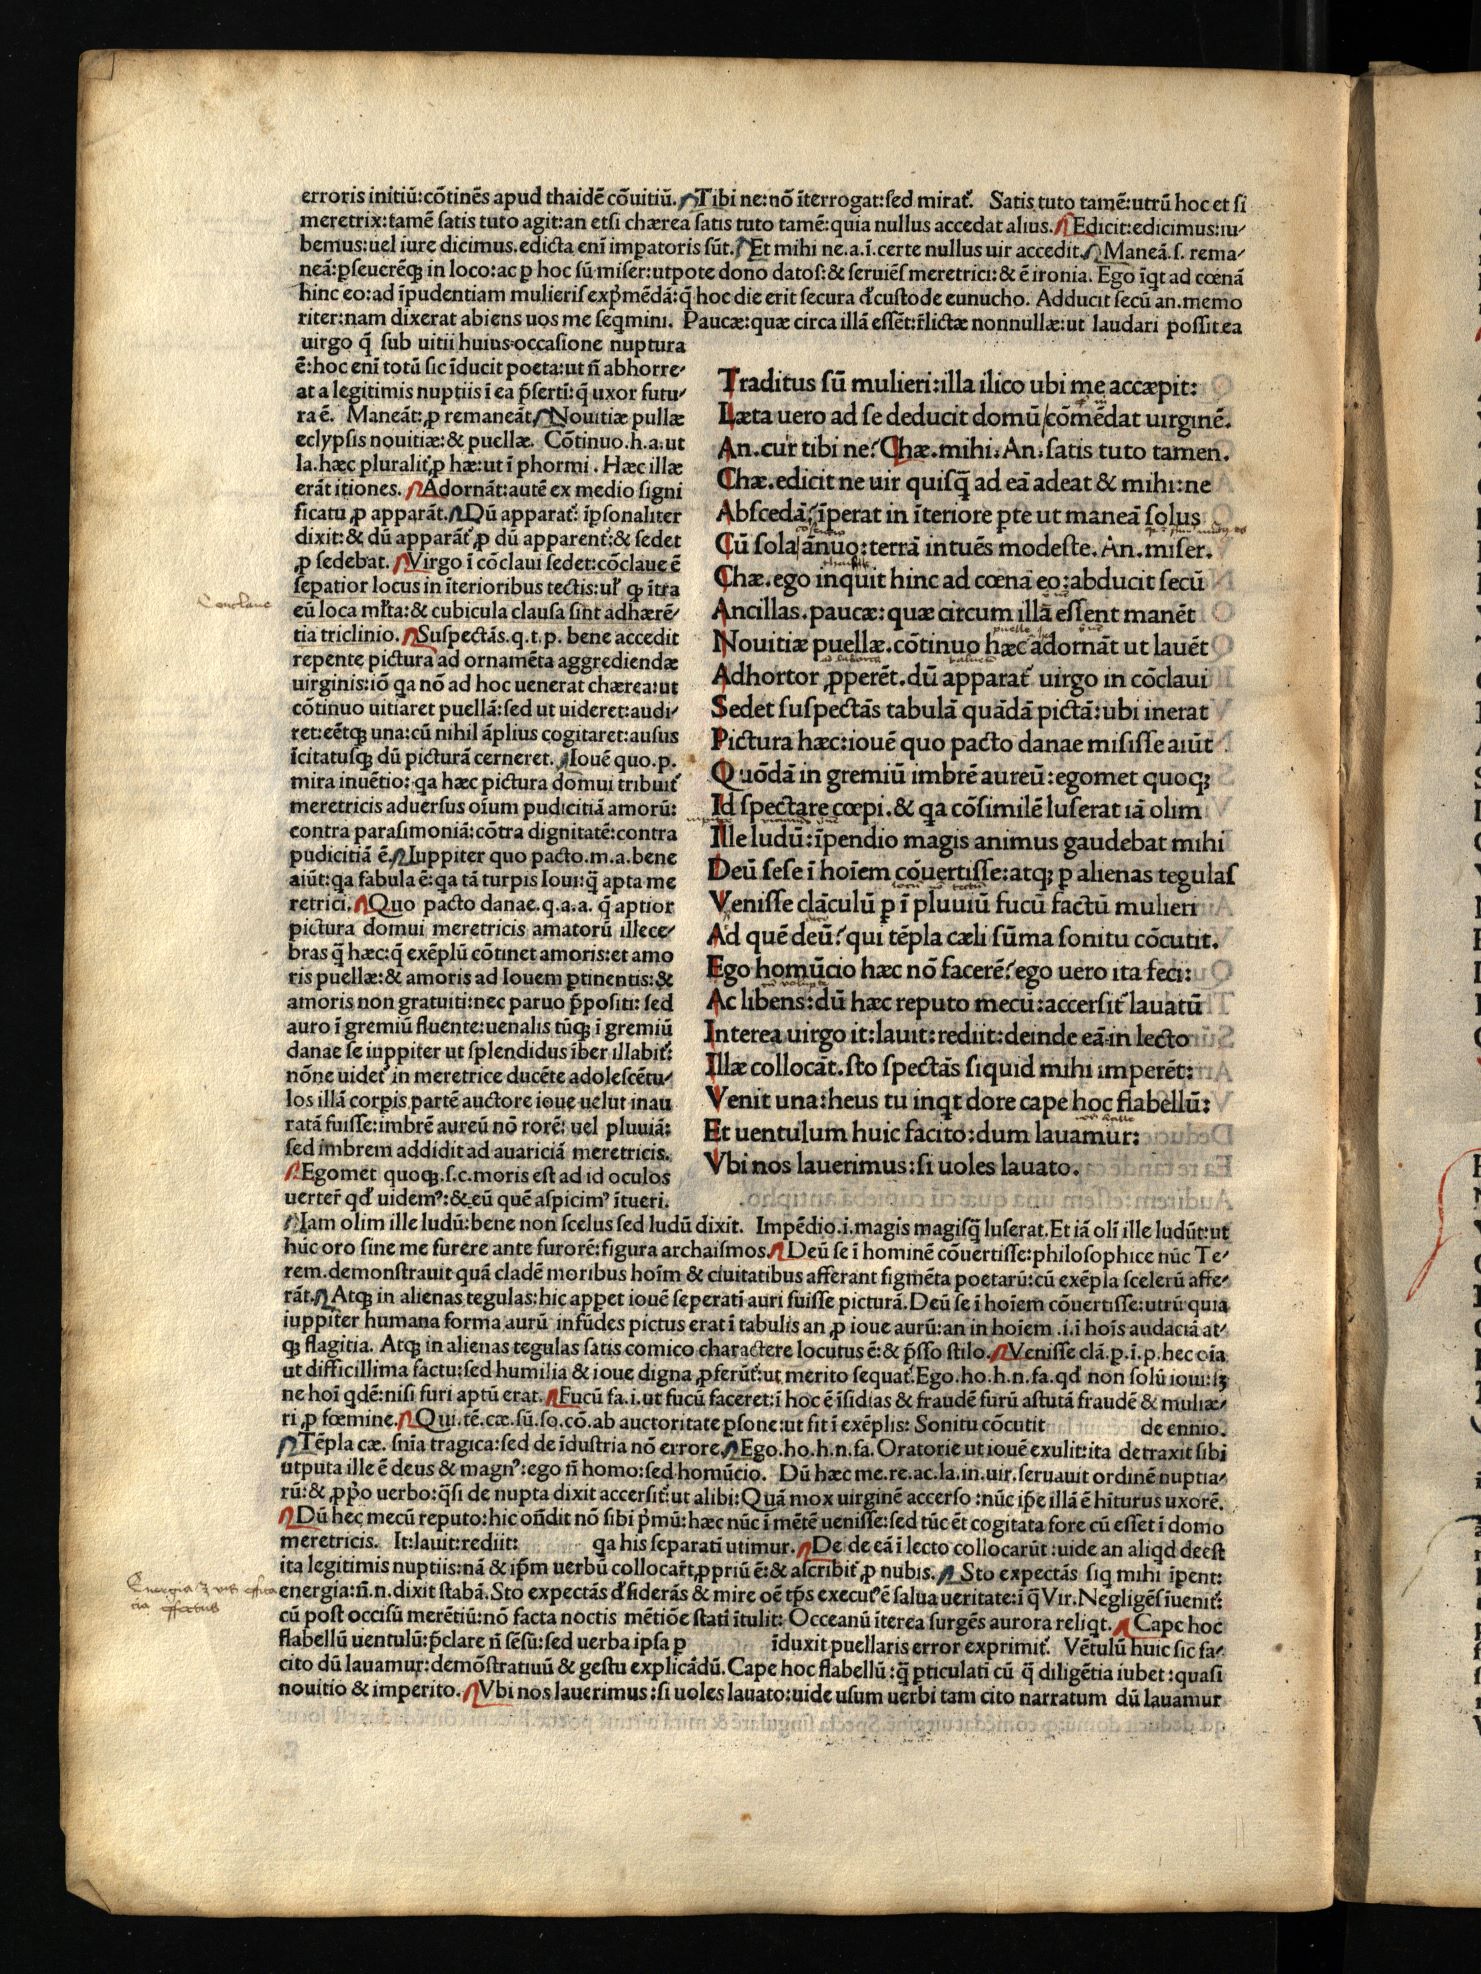 erroris initiū:cōtinēs apud thaidē cōuitiū. Tibi ne:nō īterrogat:sed mirat᷑. Satis tuto tamē:utrū hoc et si
meretrix:tamē satis tuto agit:an etsi chærea satis tuto tamē:quia nullus accedat alius. Edicit:edicimus:iu-
bemus:uel iure dicimus.edicta eni īmꝑatoris sūt. Et mihi ne.a.ī.certe nullus uir accedit. Maneā.s. rema-
neā:ꝑseuerēqꝫ in loco:ac ꝑ hoc sū miser:utpote dono datos:& seruiēs meretrici:& ē ironia. Ego īqt ad cœnā
hinc eo:ad īpudentiam mulieris exp̄mēdā:q̄ hoc die erit secura d̄custode eunucho. Adducit secū an.memo
riter:nam dixerat abiens uos me seqmini. Paucæ:quæ circa illā essēt:r̄lictæ nonnullæ:ut laudari possit ea
uirgo q̄ sub uitii huius occasione nuptura
ē:hoc enī totū sic īducit poeta:ut n̄ abhorre-
at a legitimis nuptiis ī ea p̄serti:q̄ uxor futu-
ra ē. Maneāt:ꝓ remaneāt. Nouitiæ pullæ
eclypsis nouitiæ:& puellæ. Cōtinuo.h.a.ut
la.hæc pluralit᷑ ꝓ hæ:ut ī phormi. Hæc illæ
erāt itiones. Adornāt:autē ex medio signi
ficatu ꝓ apparāt. Dū apparat᷑: īꝑsonaliter
dixit:& dū apparāt᷑ ꝓ dū apparent᷑:& sedet
ꝓ sedebat. Virgo ī cōclaui sedet:cōclaue ē
seꝑatior locus in īterioribus tectis:ul᷑ qꝫ ītra
eū loca ml᷑ta:& cubicula clausa sint adhærē-
tia triclinio. Suspectās.q.t.p. bene accedit
repente pictura ad ornamēta aggrediendæ
uirginis:iō qa nō ad hoc uenerat chærea:ut
cōtinuo uitiaret puellā:sed ut uideret:audi-
ret:eētqꝫ una:cū nihil āplius cogitaret:ausus
īcitatusqꝫ dū picturā cerneret. Iouē quo.p.
mira inuētio: qa hæc pictura domui tribuit᷑
meretricis aduersus oīum pudicitiā amorū:
contra parasimoniā:cōtra dignitatē:contra
pudicitiā ē. Iuppiter quo pacto.m.a.bene
aiūt:qa fabula ē:qa tā turpis Ioui:q̄ apta me
retrici. Quo pacto danae.q.a.a. q̄ aptior
pictura domui meretricis amatorū illece-
bras q̄ hæc:q̄ exēplū cōtinet amoris:et amo
ris puellæ:& amoris ad Iouem ꝑtinentis:&
amoris non gratuiti:nec paruo p̄positi: sed
auro ī gremiū fluente:uenalis tūqꝫ ī gremiū
danae se iuppiter ut splendidus īber illabit᷑:
nōne uidet᷑ in meretrice ducēte adolescētu-
los illā corꝑis partē auctore ioue uelut inau
ratā fuisse:imbrē aureū nō rorē: uel pluuiā:
sed imbrem addidit ad auariciā meretricis.
Egomet quoqꝫ.s.c.moris est ad id oculos
uerter᷑ qd᷑ uidemꝰ:& eū quē aspicimꝰ ītueri.
Traditus sū mulieri:illa ilico ubi me accæpit:
Læta uero ad se deducit domū cōmēdat uirginē.
An.cur tibi ne? Chæ.mihi.An.satis tuto tamen.
Chæ.edicit ne uir quisq̄ ad eā adeat & mihi:ne
Abscedā: īperat in īteriore ꝑte ut maneā solus
Cū sola annuo:terrā intuēs modeste.An.miser.
Chæ.ego inquit hinc ad cœnā eo:abducit secū
Ancillas.paucæ:quæ circum illā essent manēt
Nouitiæ puellæ.cōtinuo hæc adornāt ut lauēt
Adhortor ꝓperēt.dū apparat᷑ uirgo in cōclaui
Sedet suspectās tabulā quādā pictā:ubi inerat
Pictura hæc:iouē quo pacto danae misisse aiūt
Quōdā in gremiū imbrē aureū:egomet quoqꝫ
Id spectare cœpi.& qa cōsimilē luserat iā olim
Ille ludū:īpendio magis animus gaudebat mihi
Deū sese ī hoīem cōuertisse:atqꝫ ꝑ alienas tegulas
Venisse clāculū ꝑ ī pluuiū fucū factū mulieri
Ad quē deū? qui tēpla cæli sūma sonitu cōcutit.
Ego homūcio hæc nō facerē? ego uero ita feci:
Ac libens:dū hæc reputo mecū:accersit᷑ lauatū
Interea uirgo it:lauit:rediit:deinde eā in lecto
Illæ collocāt.sto spectās siquid mihi imperēt:
Venit una:heus tu inqt dore cape hoc flabellū:
Et uentulum huic facito:dum lauamur:
Vbi nos lauerimus:si uoles lauato.
Iam olim ille ludū:bene non scelus sed ludū dixit. Impēdio.i.magis magisq̄ luserat.Et iā oli ille ludūt:ut
hūc oro sine me furere ante furorē:figura archaismos. Deū se ī hominē cōuertisse:philosophice nūc Te-
rem.demonstrauit quā cladē moribus hoīm & ciuitatibus afferant figmēta poetarū:cū exēpla scelerū affe-
rāt. Atqꝫ in alienas tegulas:hic apꝑet iouē seperati auri fuisse picturā.Deū se ī hoīem cōuertisse:utrū quia
iuppiter humana forma aurū infūdes pictus erat ī tabulis an ꝓ ioue aurū:an in hoīem .i.ī hoīs audaciā at-
qꝫ flagitia. Atqꝫ in alienas tegulas satis comico charactere locutus ē:& p̄sso stilo. Venisse clā.p.ī.p.hec oīa
ut difficillima factu:sed humilia & ioue digna ꝓferūt᷑:ut merito sequat᷑.Ego.ho.h.n.fa.qd᷑ non solū ioui:sꝫ
ne hoī qdē:nisi furi aptū erat. Fucū fa.i.ut fucū faceret:ī hoc ē īsidias & fraudē furū astutā fraudē & muliæ-
ri ꝓ fœmine. Qui.tē.cæ.sū.so.cō.ab auctoritate ꝑsone:ut fit ī exēplis: Sonitu cōcutit de ennio.
Tēpla cæ. snīa tragica:sed de īdustria nō errore. Ego.ho.h.n.fa.Oratorie ut iouē exulit:ita detraxit sibi
utputa ille ē deus & magnꝰ:ego n̄ homo:sed homūcio. Dū hæc me.re.ac.la.in.uir.seruauit ordinē nuptia-
rū:& ꝓpo uerbo:q̄si de nupta dixit accersit᷑:ut alibi:Quā mox uirginē accerso :nūc ip̄e illā ē hīturus uxorē.
Dū hec mecū reputo:hic oñdit nō sibi p̄mū:hæc nūc ī mētē uenisse:sed tūc ēt cogitata fore cū esset ī domo
meretricis. It:lauit:rediit: qa his separati utimur. De de eā ī lecto collocarūt:uide an aliqd deest
ita legitimis nuptiis:nā & ip̄m uerbū collocar᷑t ꝓpriū ē:& ascribit᷑ ꝓ nubis. Sto expectās siq mihi īpent:
energia:n̄.n.dixit stabā.Sto expectās d᷑siderās & mire oē tp̄s executꝰ ē salua ueritate:ī q̄ Vir.Negligēs iuenit᷑:
cū post occisū merētiū:nō facta noctis mētiōe stati ītulit: Occeanū īterea surgēs aurora reliqt. Cape hoc
flabellū uentulū:p̄clare n̄ sēsū:sed uerba ipsa ꝑ īduxit puellaris error exprimit᷑. Vētulū huic sic fa-
cito dū lauamur:demōstratiuū & gestu explicādū.Cape hoc flabellū :q̄ ꝑticulati cū q̄ diligētia iubet:quasi
nouitio & imperito. Vbi nos lauerimus:si uoles lauato:uide usum uerbi tam cito narratum dū lauamur
Conclave